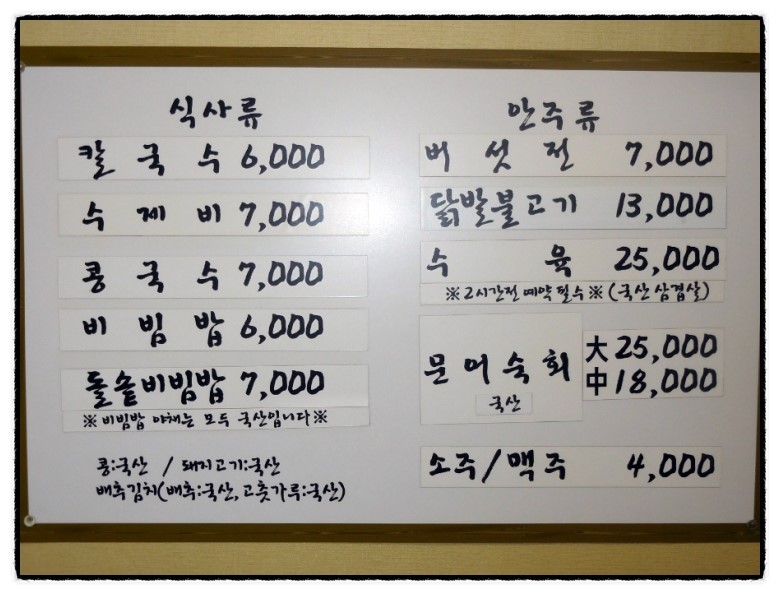 식사류
칼국수 6,000
수제비 7,000
콩국수 7,000
비빔밥 6,000
돌솥비빔밥 7,000
※비빔밥 야채는 모두 국산입니다※
콩:국산 / 돼지고기:국산
배추김치(배추:국산, 고춧가루:국산)
안주류
버섯전 7,000
닭발불고기 13,000
수육 25,000
※2시간전 예약 필수※ (국산 삼겹살)
문어숙회 大 25,000
국산 中 18,000
소주/맥주 4,000